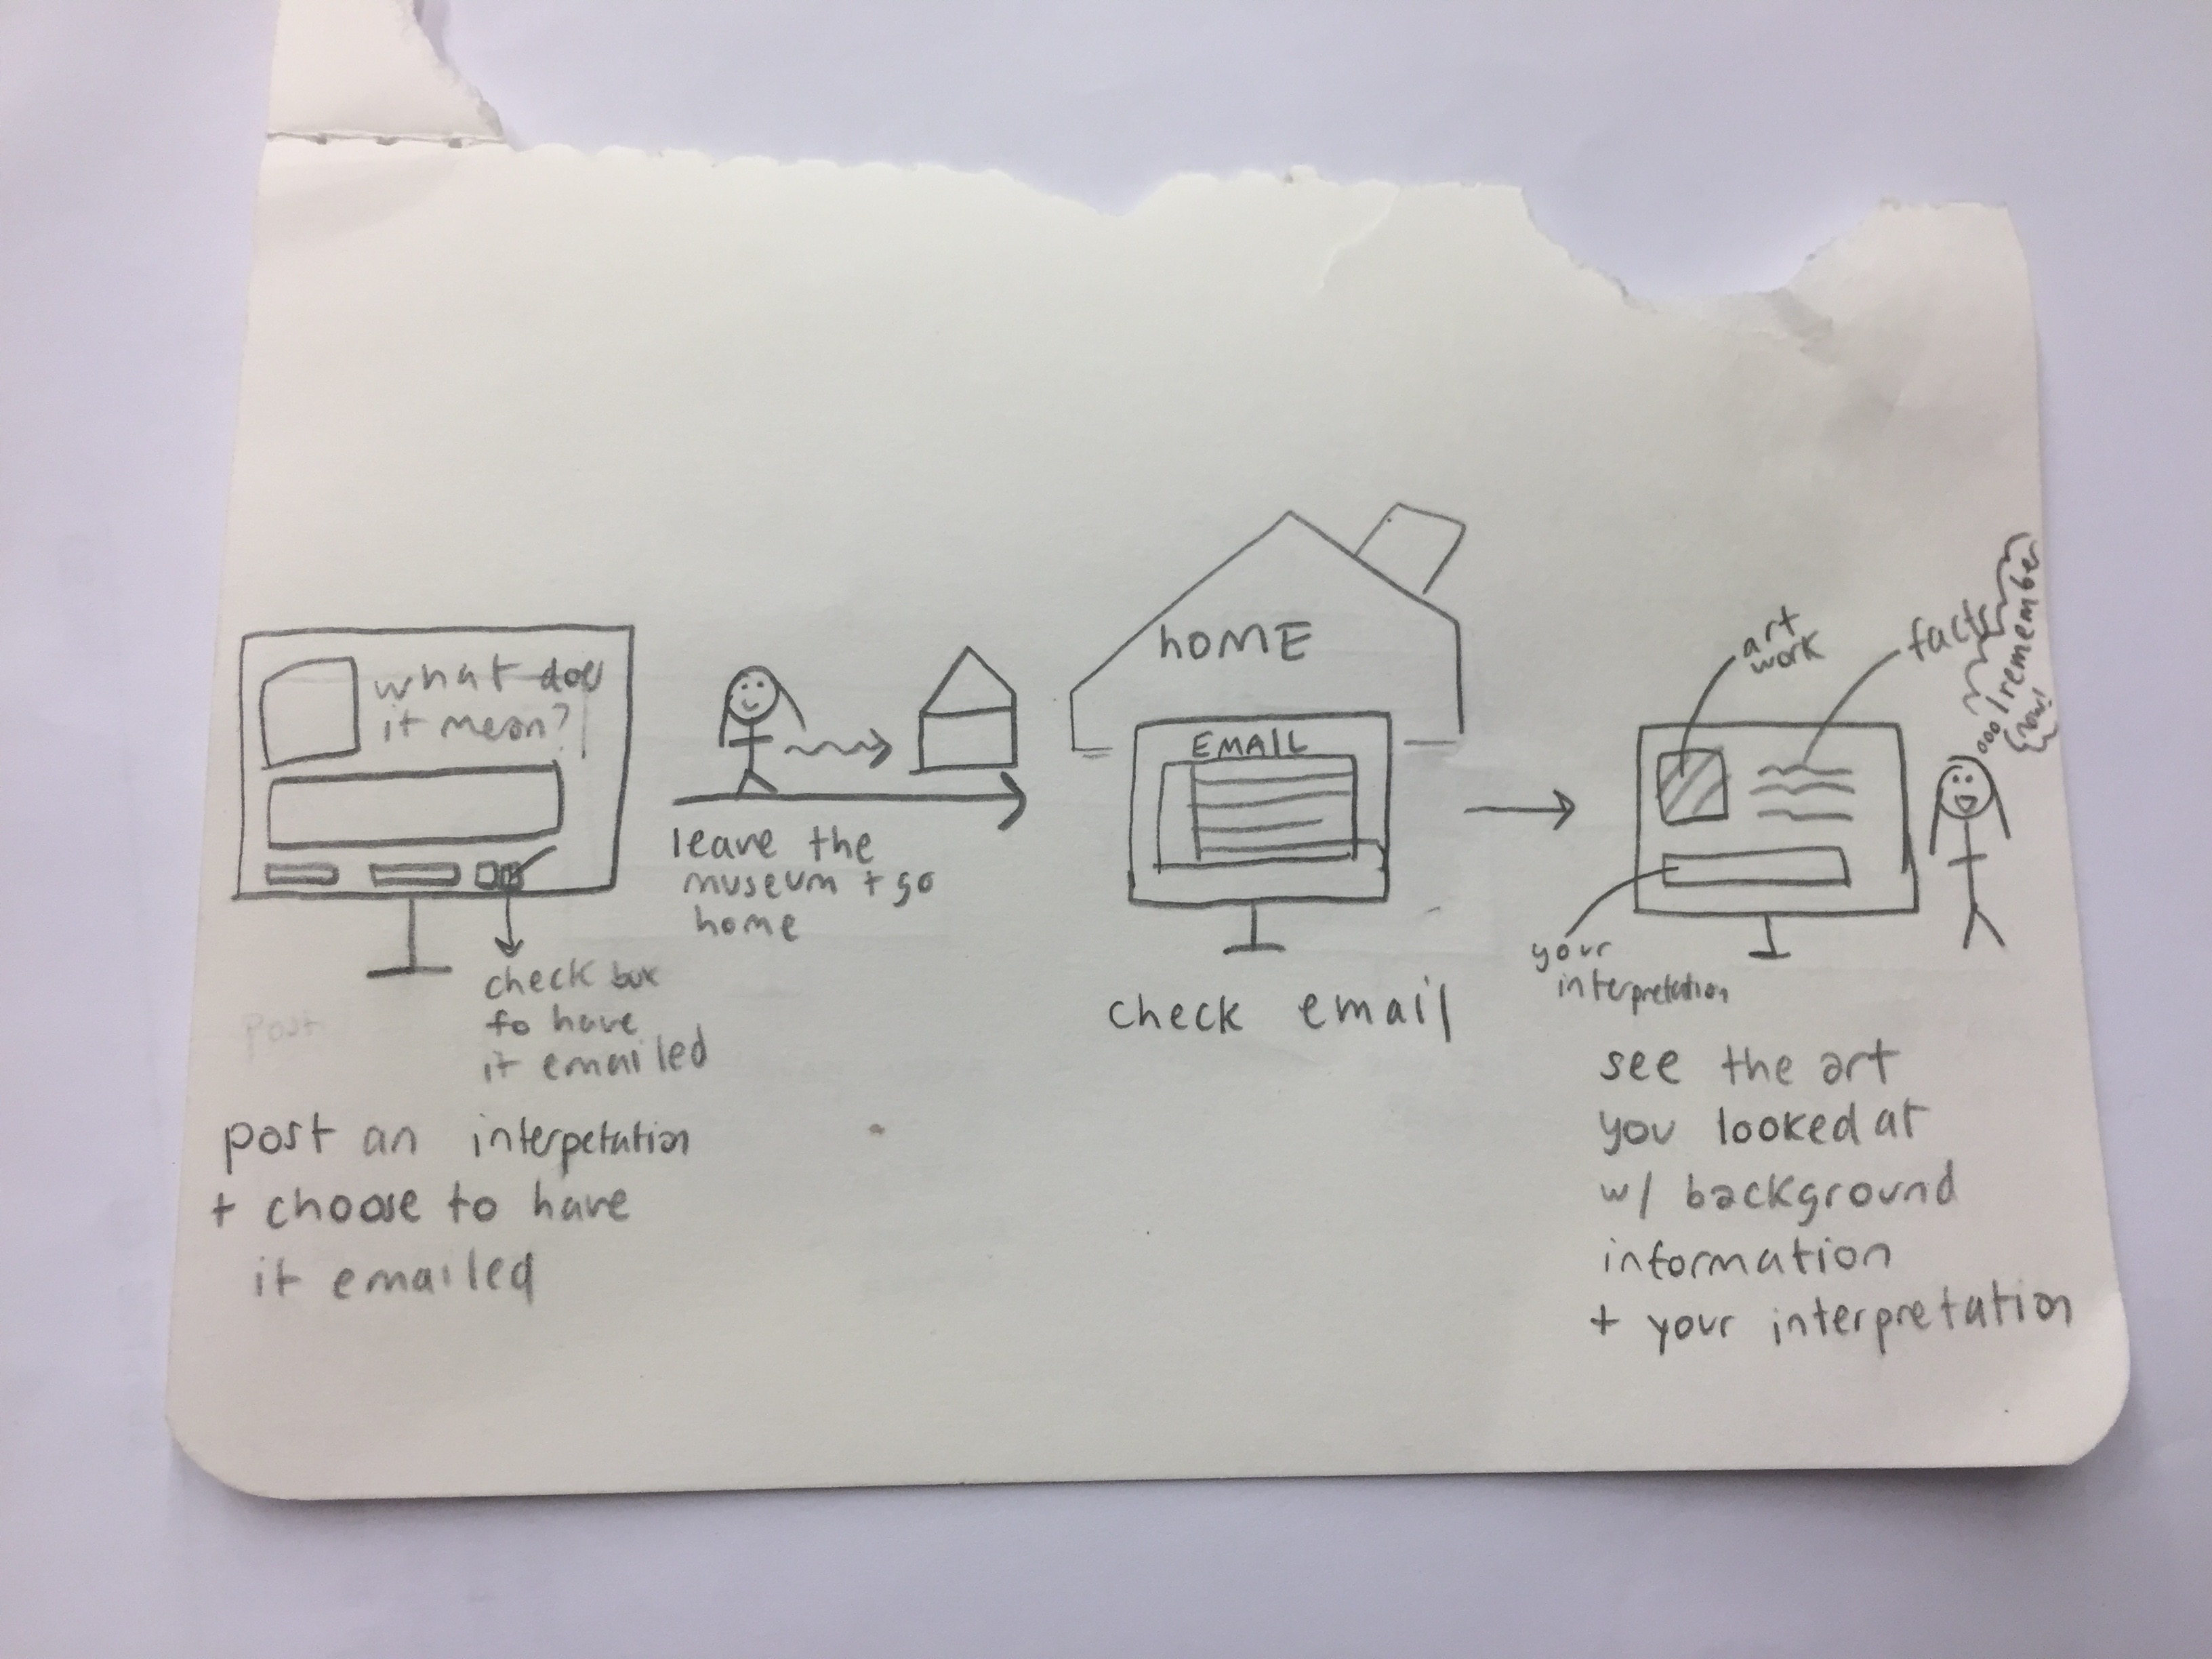 what does
it mean?
check box
to have
it emailed
Post
post an interpetation
+ choose to have
it emailed
leave the
museum + go
home
HOME
EMAIL
check email
art
work
facts
your
interpretation
ooo I remember
now!
see the art
you looked at
w/ background
information
+ your interpretation